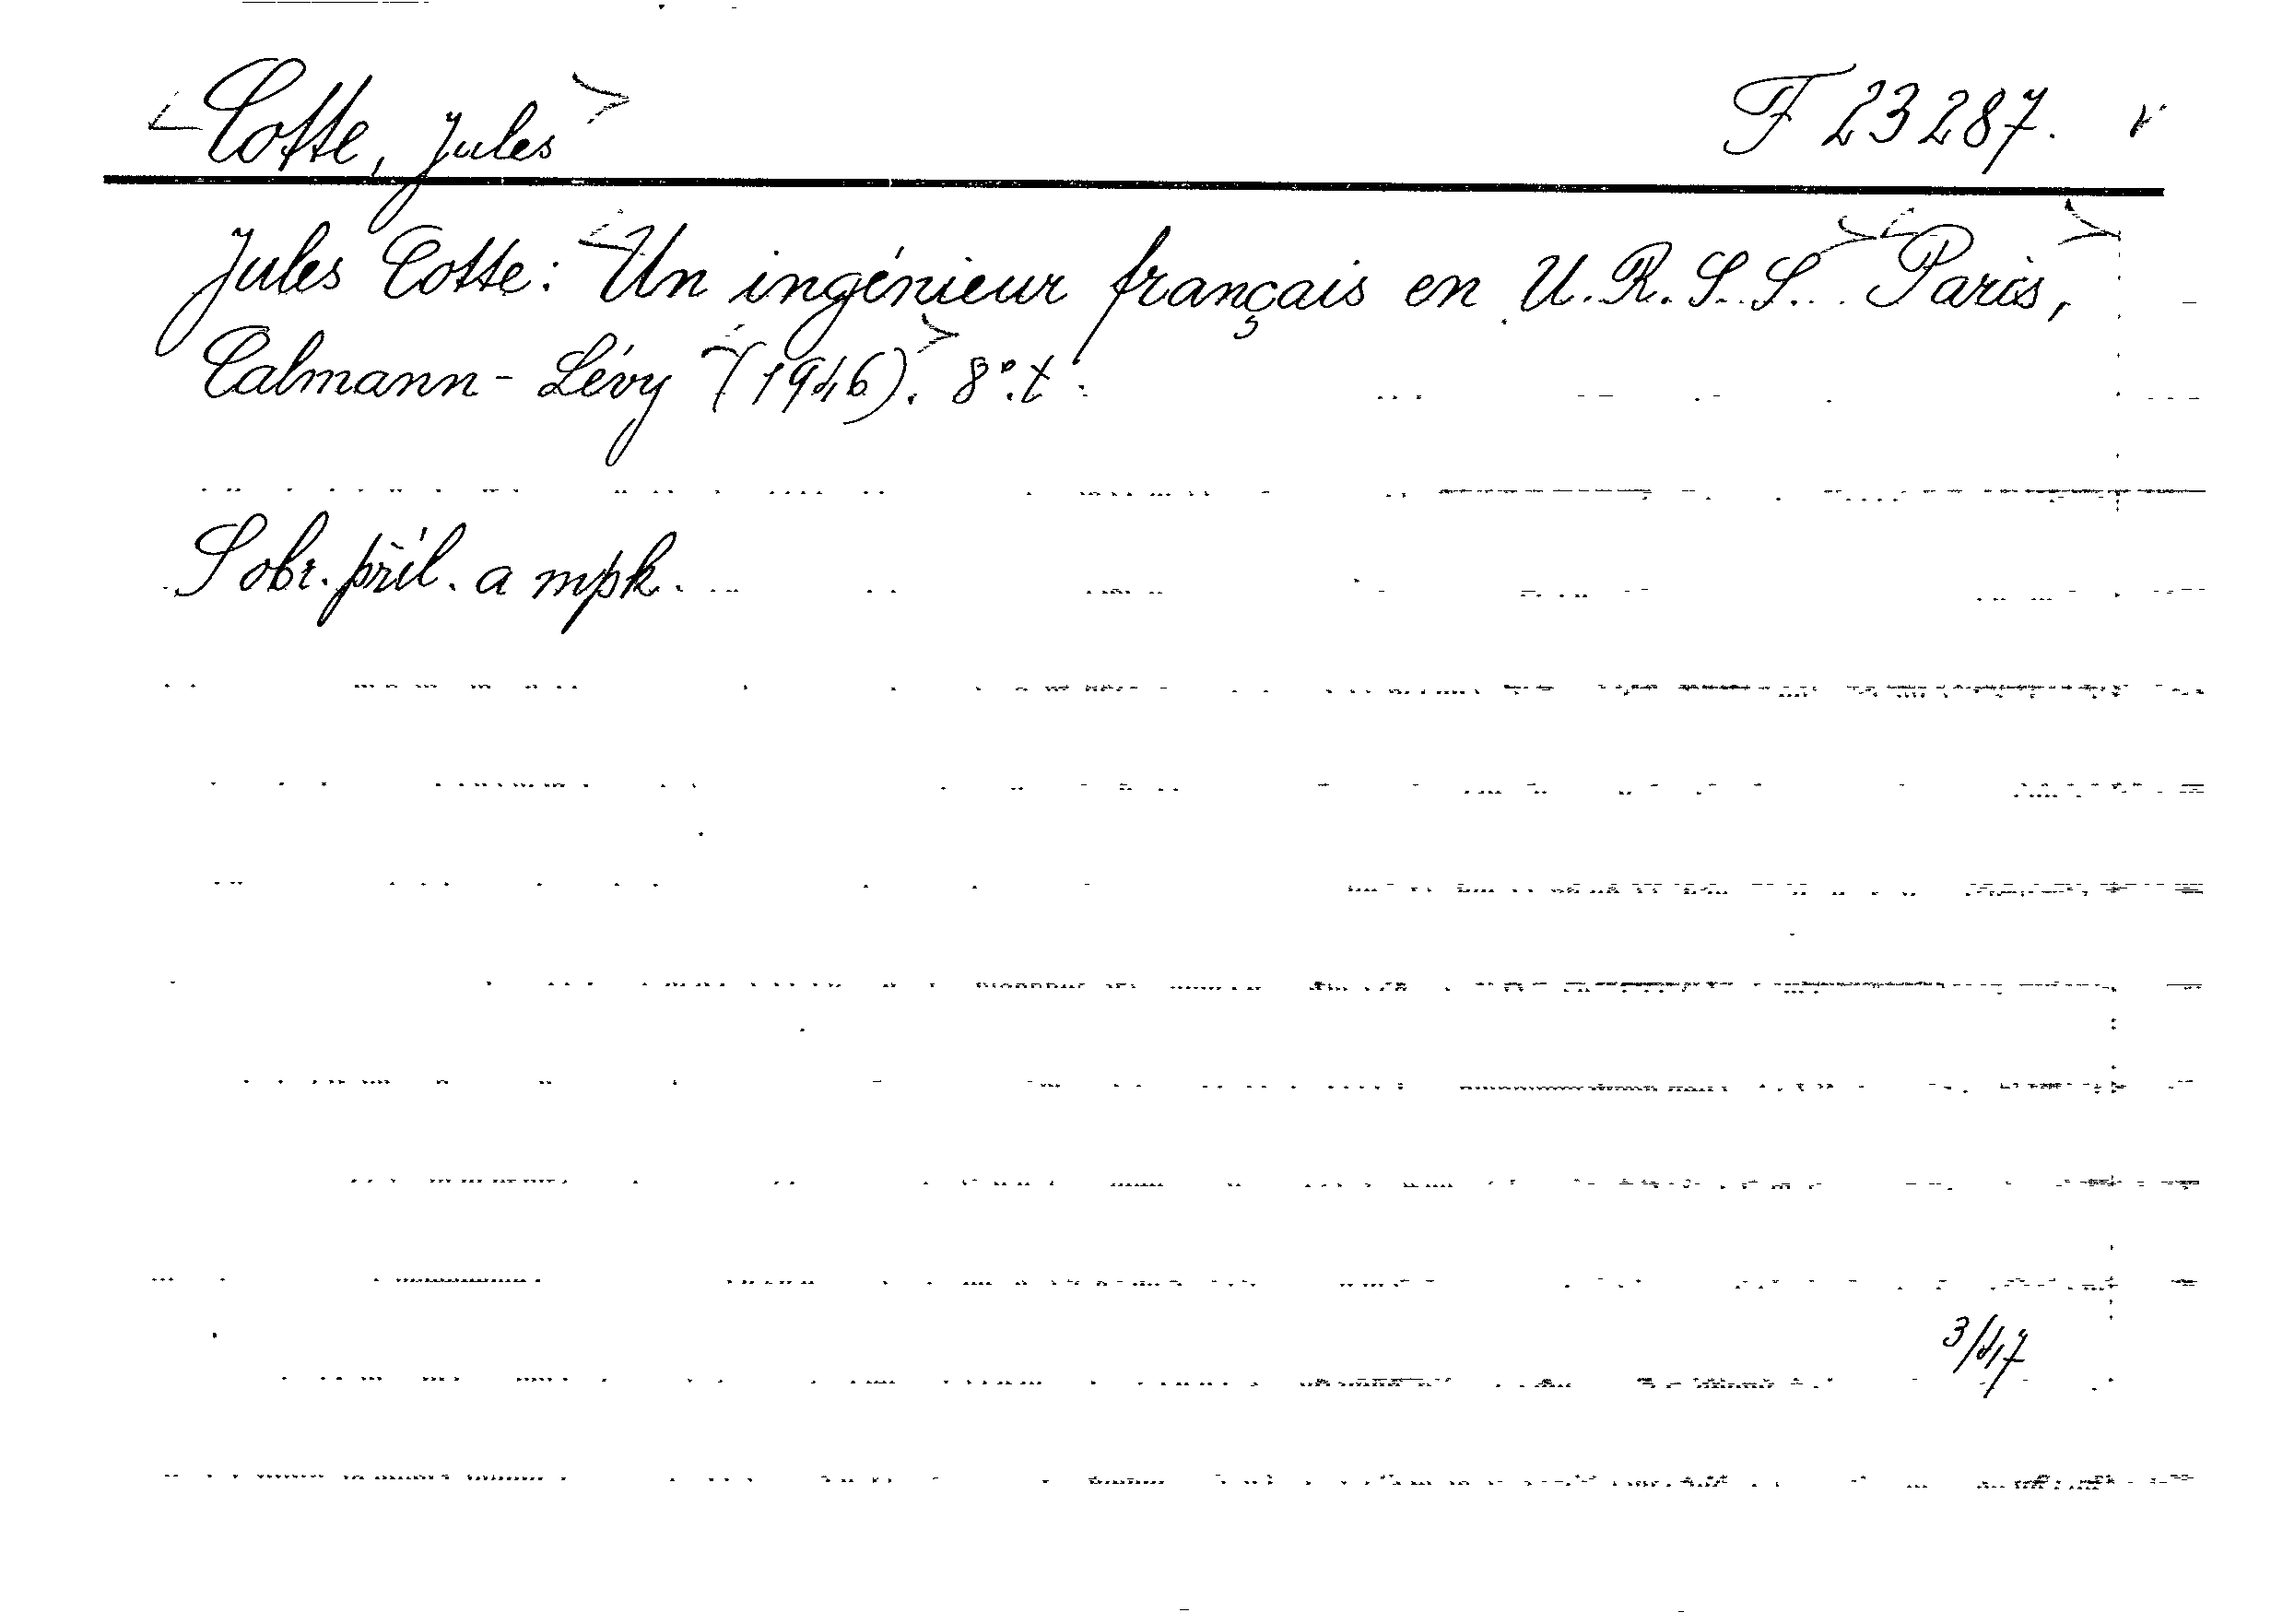 Cotte, Jules F 23287.
Jules Cotte: Un ingénieur français en U.R.S.S. Paris,
Calmann-Lévy (1946). 8°. t
S obr. příl. a mpk.
3/47